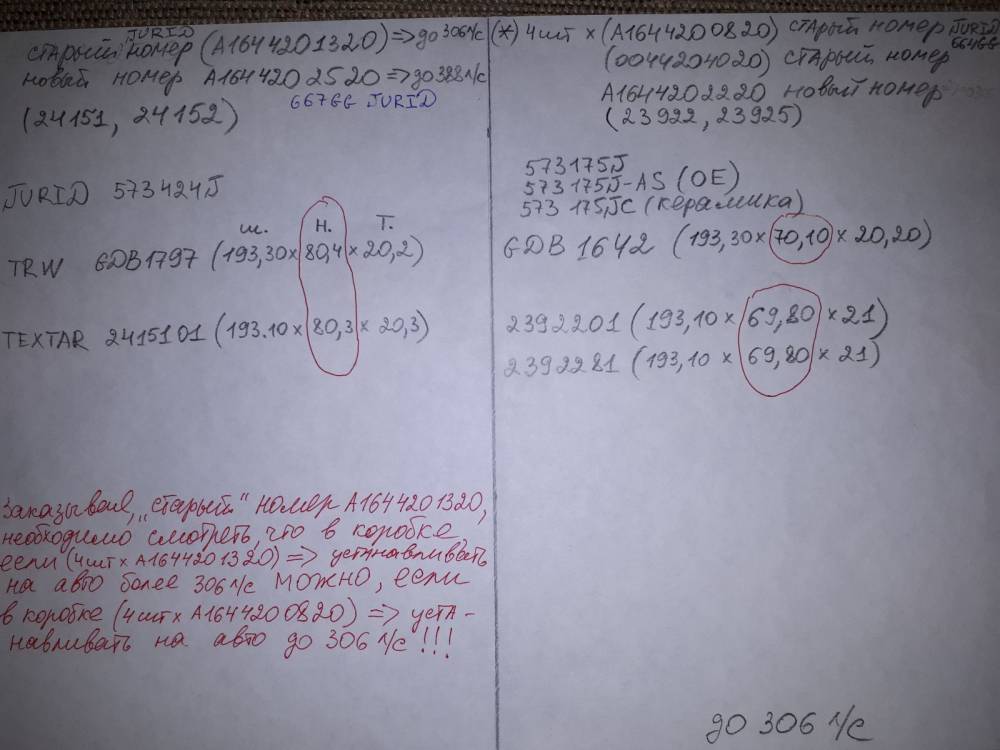 JURID
старый номер (A1644201320)=>до 306 л/с
новый номер A1644202520=>до 388 л/с
667GG JURID
(24151, 24152)
JURID 573424J
ш. н. Т.
TRW GDB1797 (193,30×80,4×20,2)
TEXTAR 2415101 (193.10×80,3×20,3)
Заказывая, „старый“ номер A1644201320,
необходимо смотреть, что в коробке,
если (4шт×A1644201320)=> устнавливать
на авто более 306 л/с МОЖНО, если
в коробке (4шт×A1644200820)=> уста-
навливать на авто до 306 л/с!!!
(*) 4шт×(A1644200820) старый номер JURID
664GG
(0044204020) старый номер
A1644202220 новый номер
(23922, 23925)
573175J
573175J-AS (OE)
573175JC (керамика)
GDB1642 (193,30×70,10×20,20)
2392201 (193,10×69,80×21)
2392281 (193,10×69,80×21)
до 306 л/с